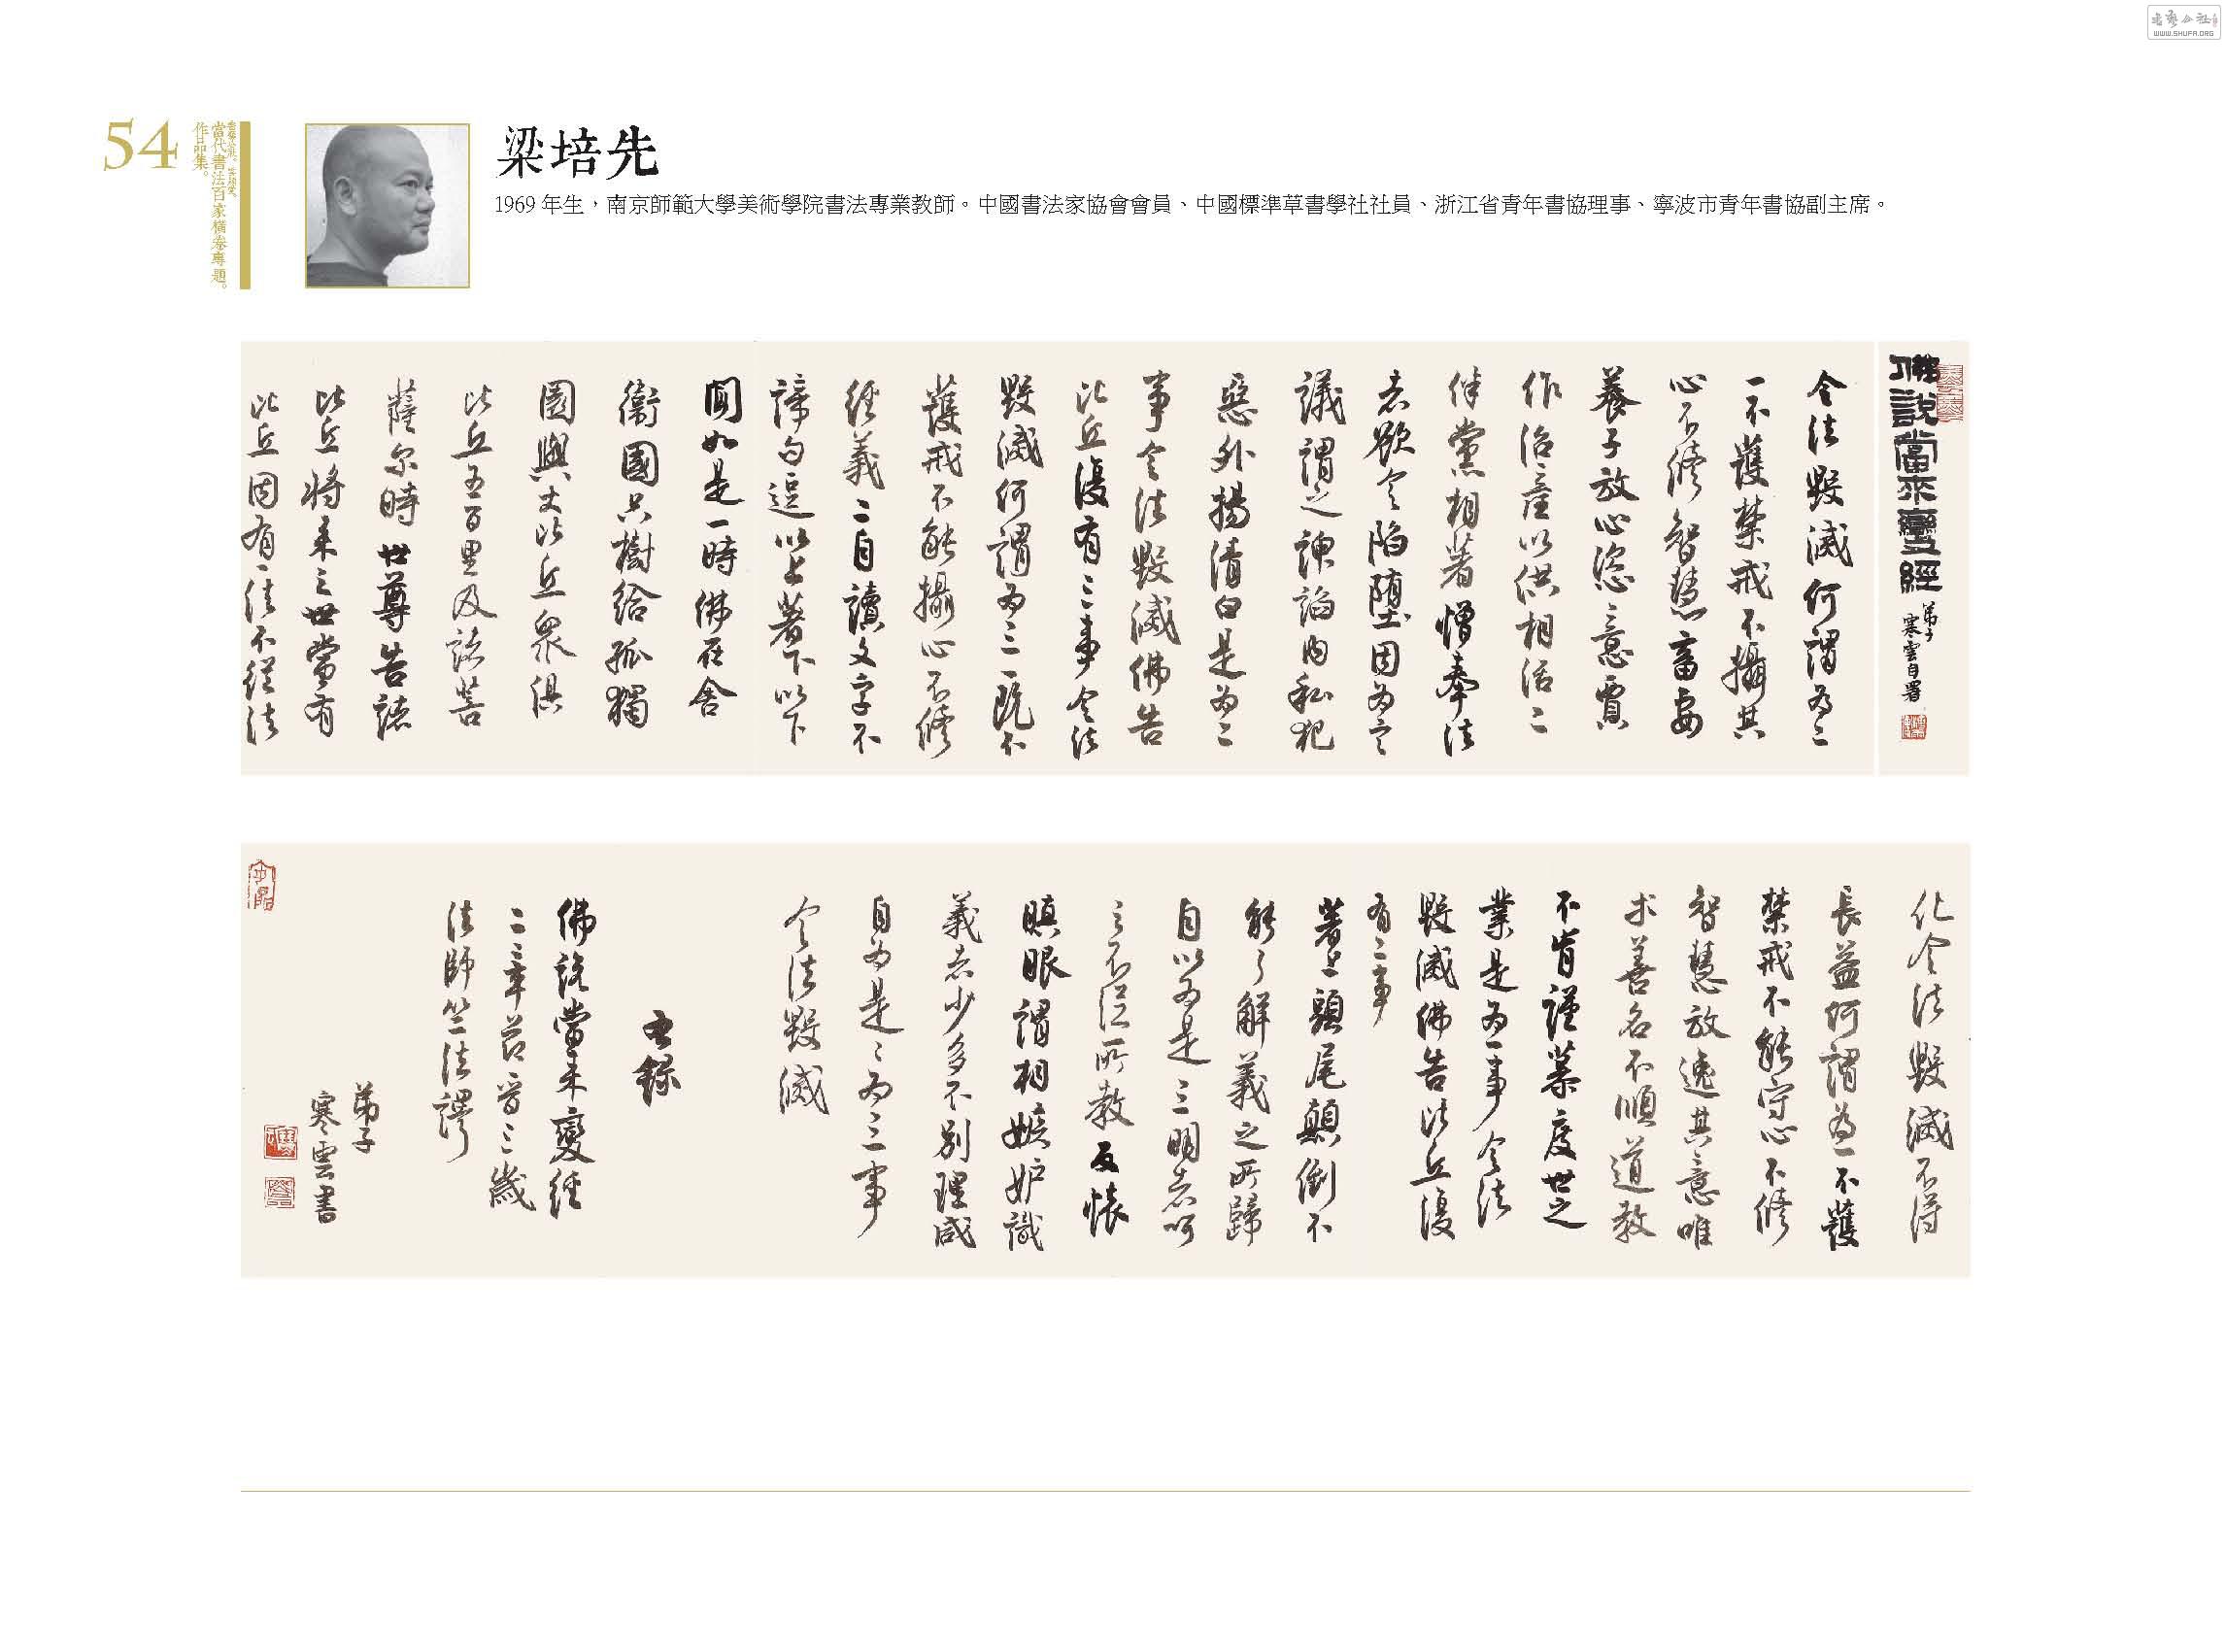 書藝公社
WWW.SHUFA.ORG
54
當代書法百家橫卷專題。
作品集。
梁培先
1969 年生，南京師範大學美術學院書法專業教師。中國書法家協會會員、中國標準草書學社社員、浙江省青年書協理事、寧波市青年書協副主席。
佛說當來變經
弟子
寒雲自署
令法毀滅何謂為二
一不護禁戒不攝其
心不修智慧畜妻
養子放心恣意賈
作治產以供相活二
伴黨相著憎奉法
者欲令陷墮因為言
議謂之諛諂內私犯
惡外揚清白是為二
事令法毀滅佛告
比丘復有三事令法
毀滅何謂為三一既不
護戒不能攝心不修
經義二自讀文字不
諦句逗以上著下以下
聞如是一時佛在舍
衛國祇樹給孤獨
園與大比丘眾俱
比丘五百眾及諸菩
薩尔時世尊告諸
比丘將来之世當有
比丘因有一法不從法
化令法毀滅不得
長益何謂為一不護
禁戒不能守心不修
智慧放逸其意唯
求善名不順道教
不肯謹慕度世之
業是為一事令法
毀滅佛告比丘復
有二事
著上頭尾顛倒不
能了解義之所歸
自以為是三明者呵
之不從所教反懷
瞋眼謂相嫉妒識
義者少多不別理咸
自為是是為三事
令法毀滅
右錄
佛說當来變經
二章节晉三藏
法師竺法護
弟子
寒雲書